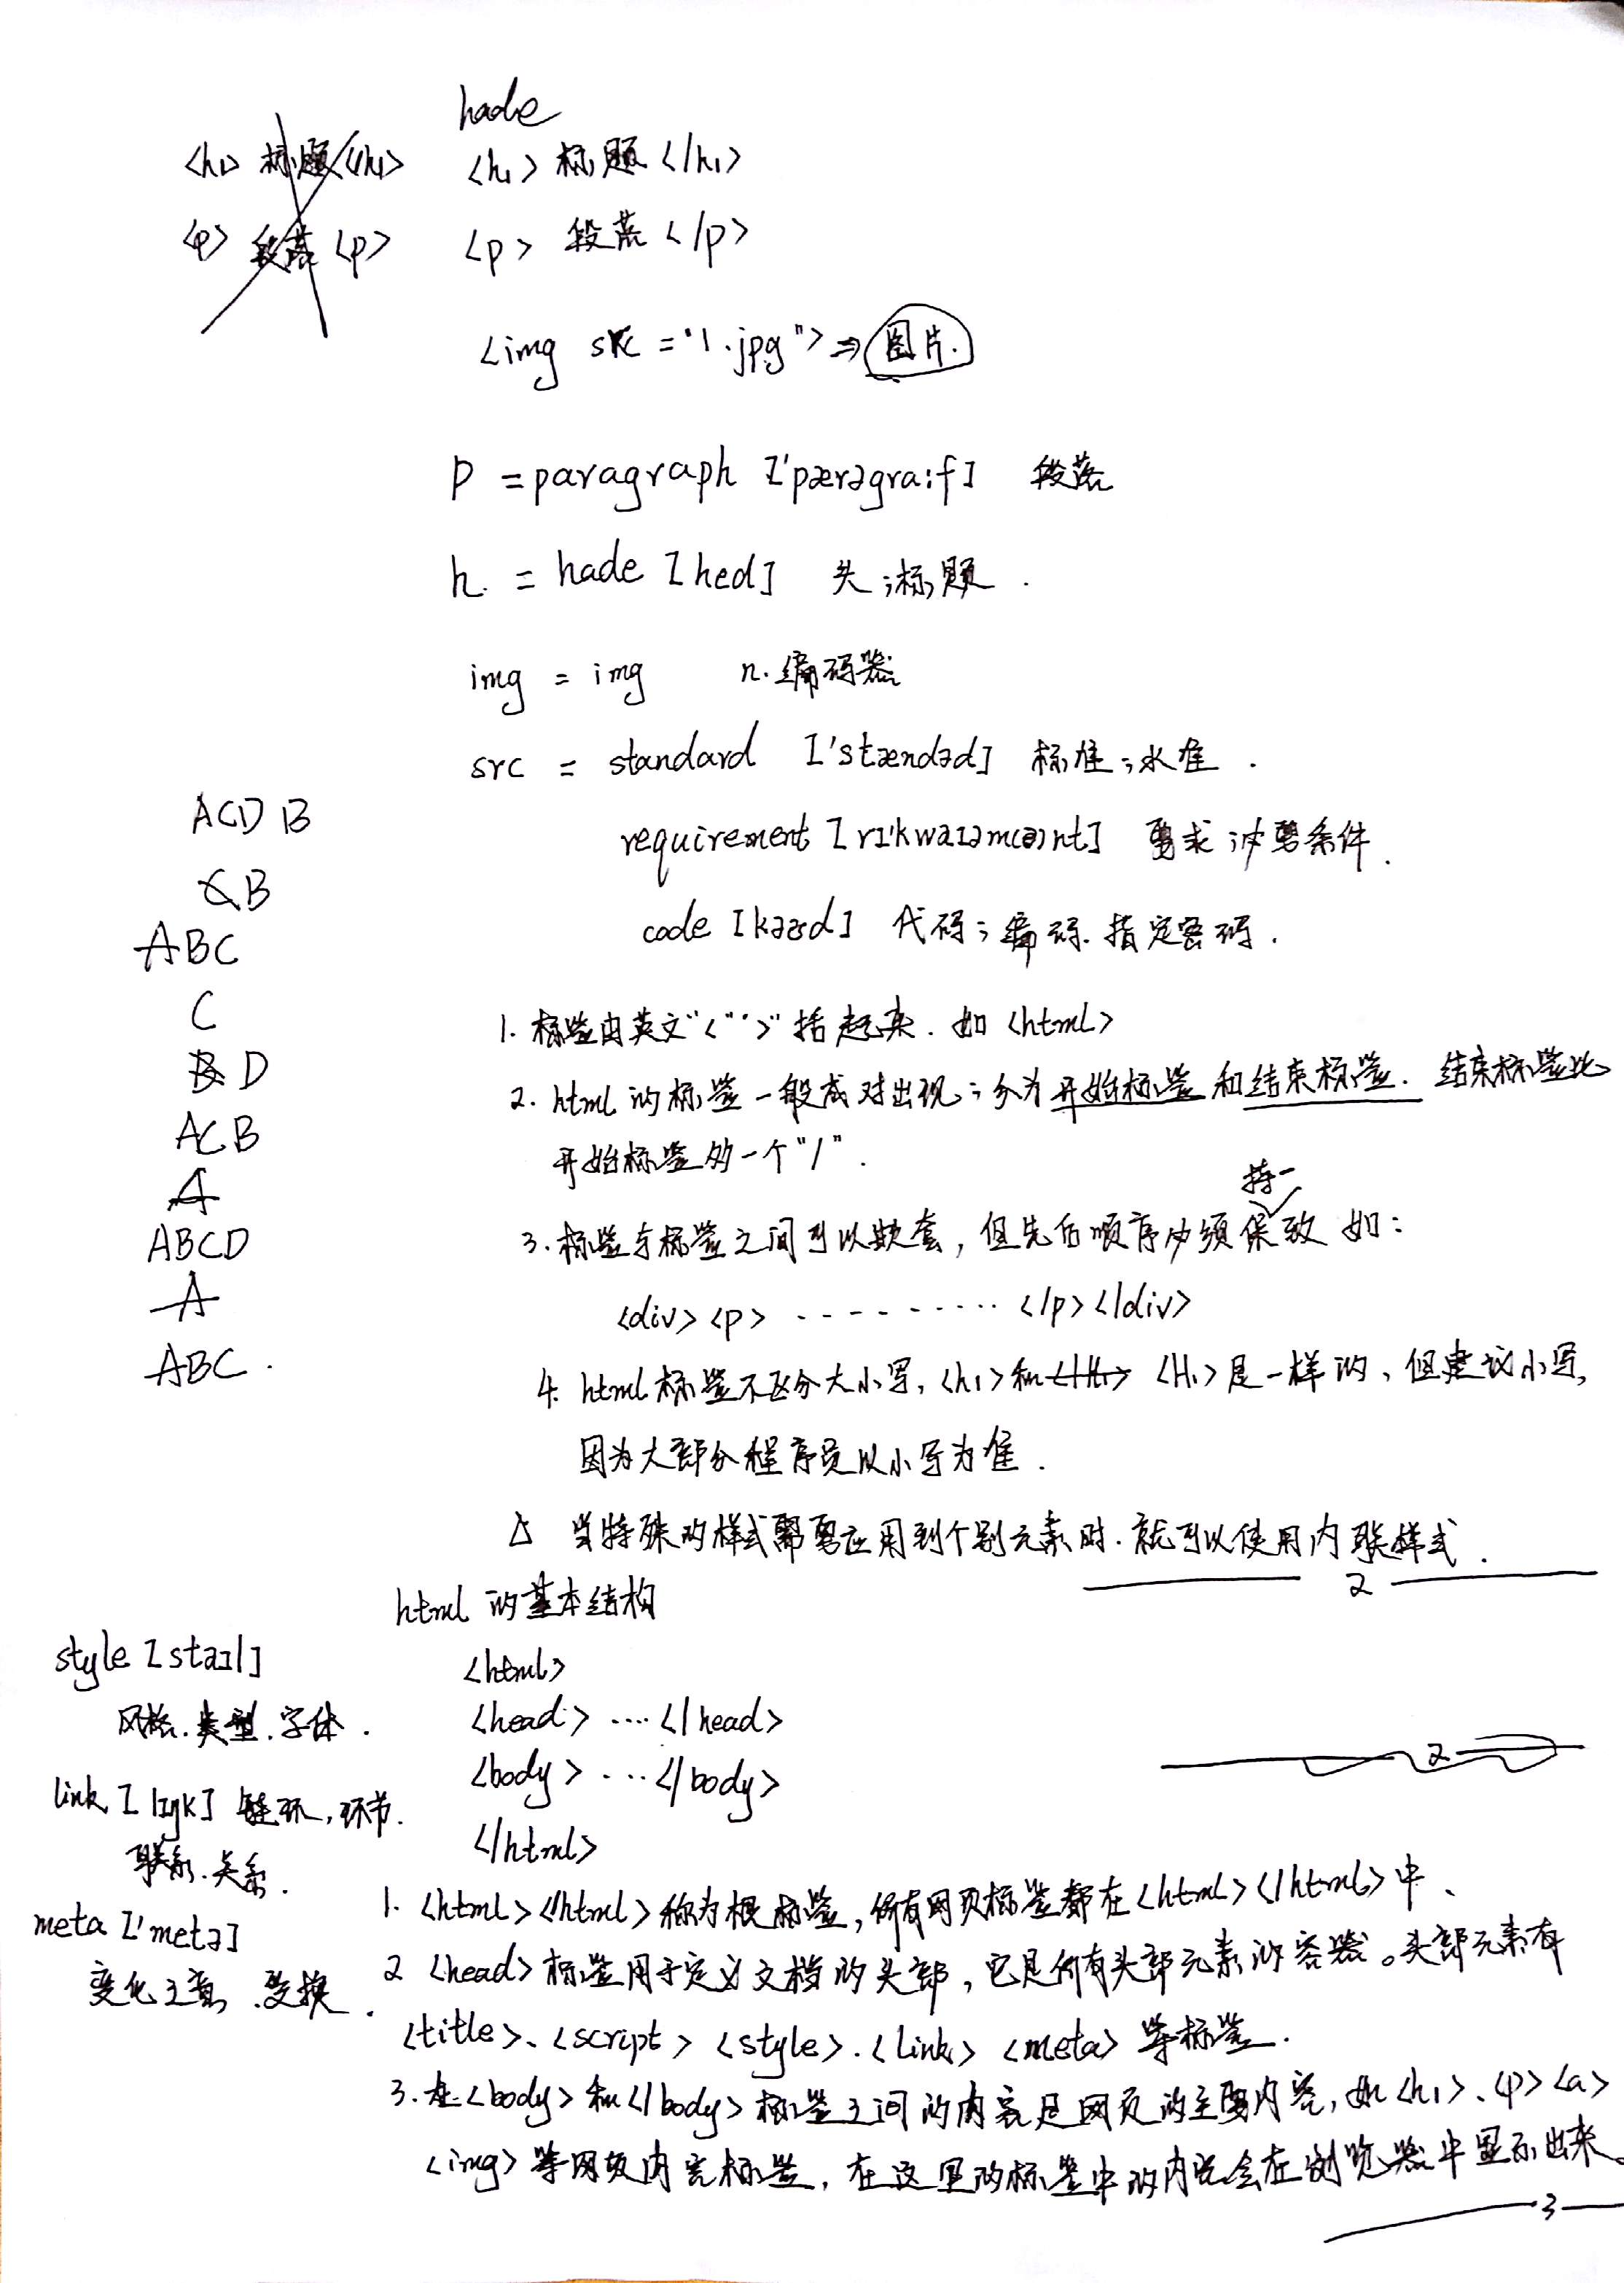 hade
<h1> 标题</h1>
<p> 段落 <p>
<h1> 标题 </h1>
<p> 段落 </p>
<img src="1.jpg"> ⇒ 图片.
P = paragraph ['pærəgra:f] 段落
h. = hade [hed] 头;标题.
img = img n.编码器
src = standard ['stændəd] 标准;水准.
requirement [rɪ'kwaɪəm(ə)nt] 要求;必要条件.
code [kəʊd] 代码;编码.指定密码.
ACD B
C B
ABC
C
B D
ACB
A
ABCD
A
ABC.
1. 标签由英文"<"">"括起来.如<html>
2. html的标签一般成对出现;分为开始标签和结束标签.结束标签比
开始标签多一个"/".
持一
3. 标签与标签之间可以嵌套,但先后顺序必须保致 如:
<div><p> ---------- </p></div>
4. html标签不区分大小写,<h1>和<H1> <H1>是一样的、但建议小写,
因为大部分程序员以小写为准.
△ 当特殊的样式需要应用到个别元素时.就可以使用内联样式.
2
html 的基本结构
<html>
<head> .... </head>
<body> ... </body>
</html>
2
style [staɪl]
风格.类型.字体.
link [lɪŋk] 链环,环节.
联系.关系.
meta ['metə]
变化之意、变换.
1. <html></html>称为根标签,所有网页标签都在<html></html>中、
2 <head>标签用于定义文档的头部,它是所有头部元素的容器。头部元素有
<title>、<script> <style>.<link> <meta> 等标签.
3. 在<body>和</body>标签之间的内容是网页的主要内容,如<h1>、<p><a>
<img>等网页内容标签,在这里的标签中的内容会在浏览器中显示出来。
3